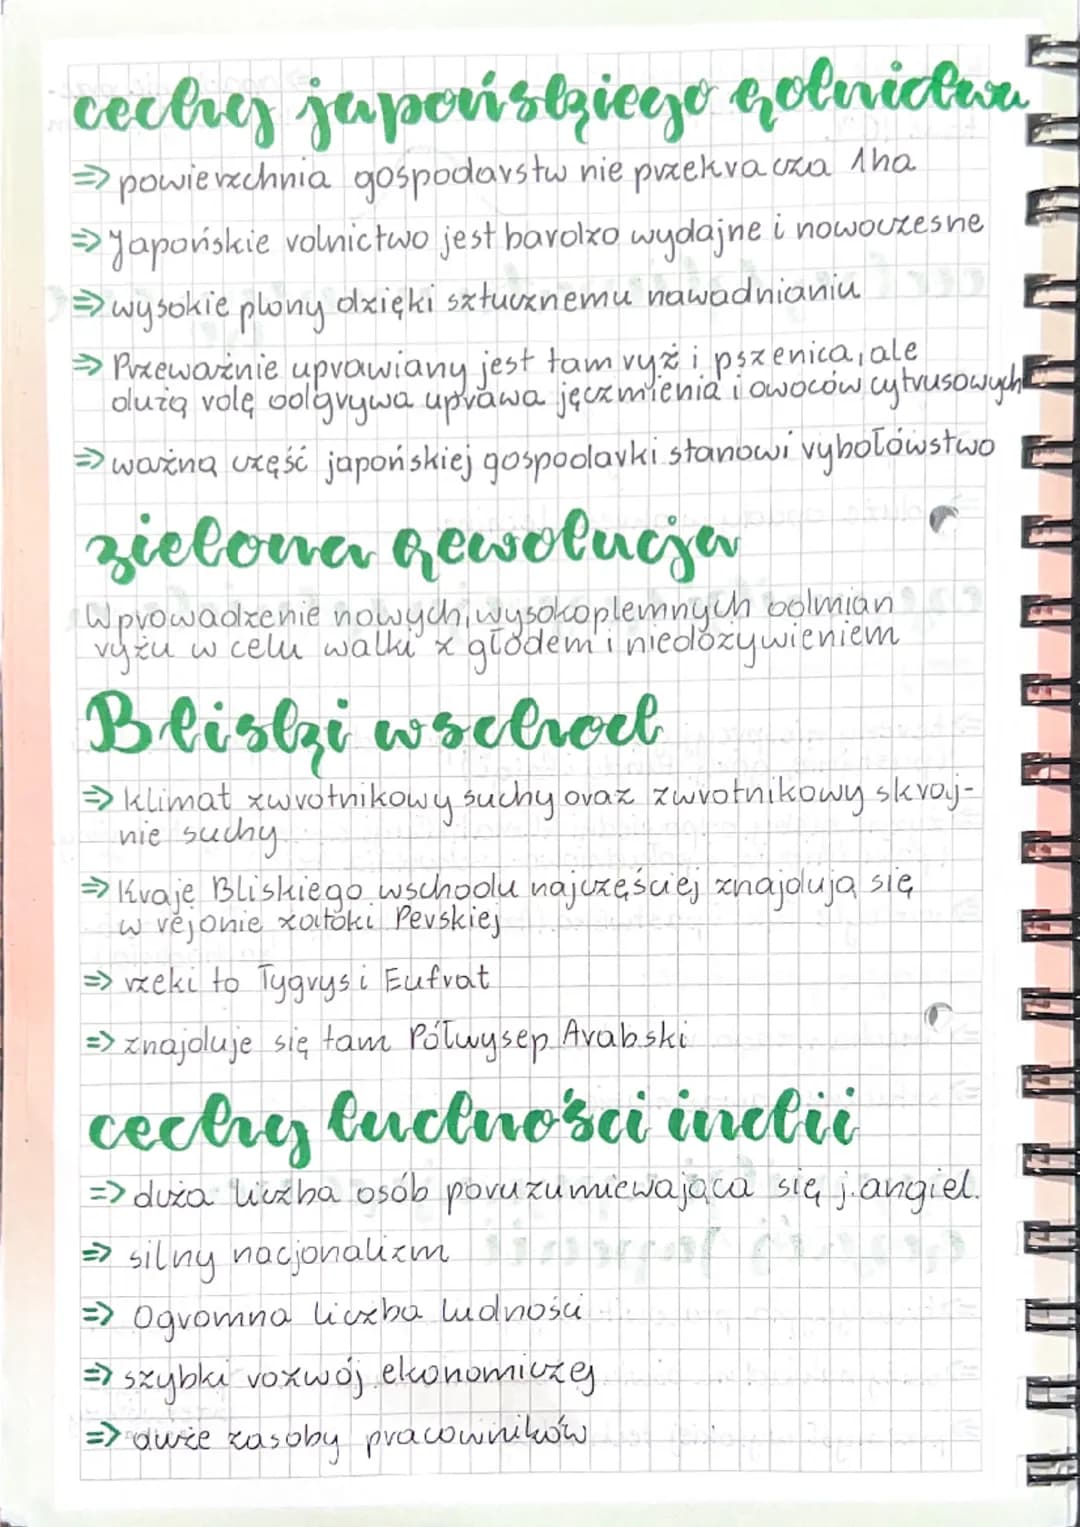 cechy japońskiego rolnictwa
=> powierzchnia gospodarstw nie przekracza 1ha
=> Japońskie rolnictwo jest bardzo wydajne i nowoczesne
=> wysokie plony dzięki sztucznemu nawadnianiu
=> Przeważnie uprawiany jest tam ryż i pszenica, ale
dużą rolę odgrywa uprawa jęczmienia i owoców cytrusowych
=> ważną część japońskiej gospodarki stanowi rybołówstwo
zielona rewolucja
Wprowadzenie nowych, wysokoplemnych odmian
ryżu w celu walki z głodem i niedożywieniem
Bliski wschod
=> Klimat zwrotnikowy suchy oraz zwrotnikowy skraj-
nie suchy
=> Kraje Bliskiego wschodu najczęściej znajdują się
w rejonie zatoki Perskiej
=> rzeki to Tygrys i Eufrat
=> znajduje się tam Półwysep Arabski
cechy ludności indii
=> duża liczba osób porozumiewająca się j.angiel.
=> silny nacjonalizm
=> Ogromna liczba ludności
=> szybki rozwój ekonomiczny
=> duże zasoby pracowników